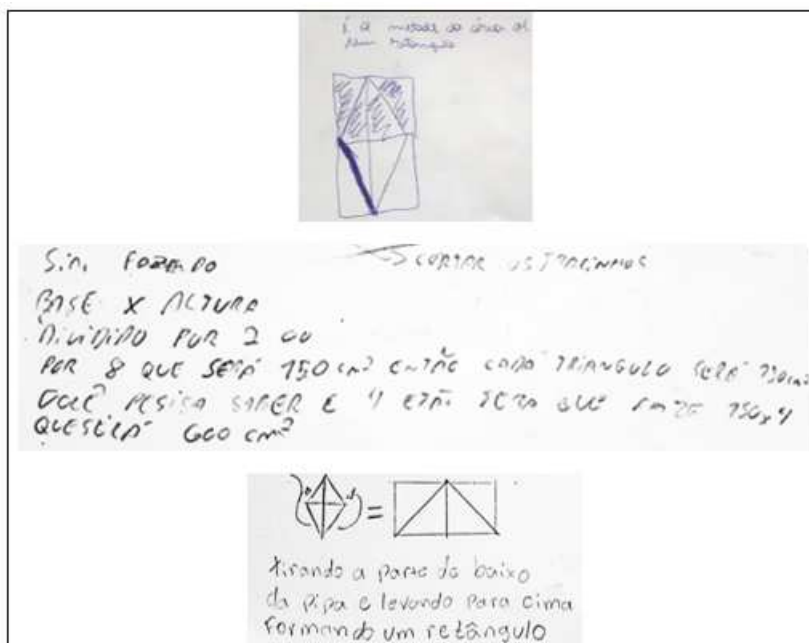 É a metade da área de
um retângulo
Sim, FAZENDO
RECORTAR OS TRACINHOS
BASE X ALTURA
DIVIDIDO POR 2 OU
POR 8 QUE SERÁ 150 cm² ENTÃO CADA TRIANGULO SERÁ 150 cm²
VOCÊ SABER E 4 SERA QUE 150 x 4
QUE SERÁ 600 cm²
=
tirando a parte de baixo
da pipa e levando para cima
formando um retângulo